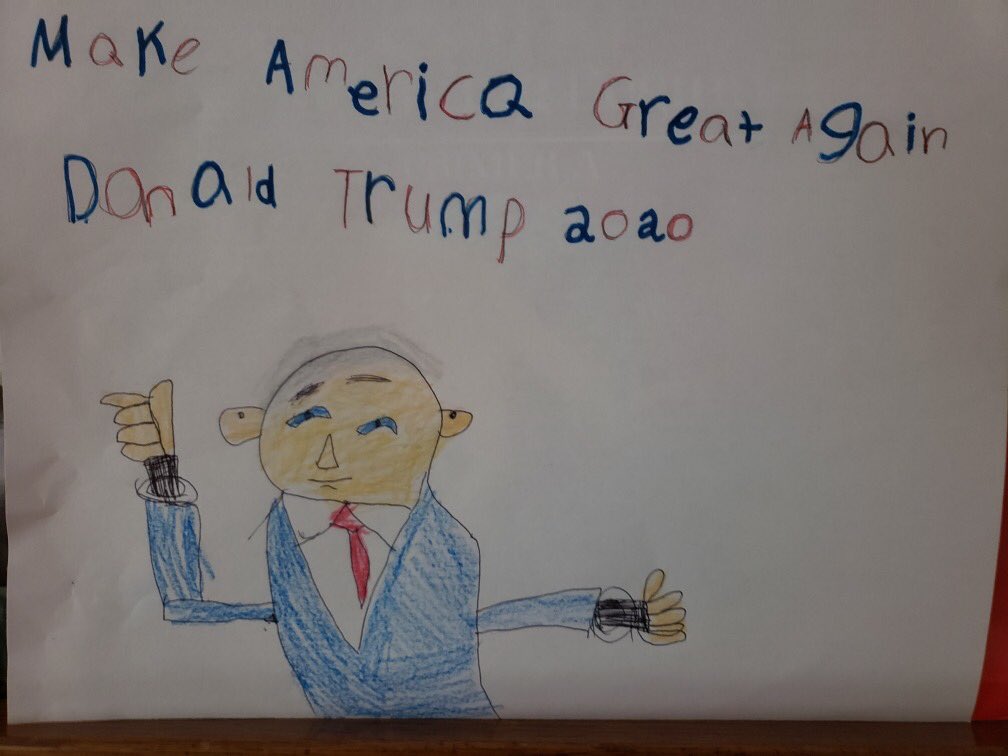 Make America Great Again
Donald Trump 2020